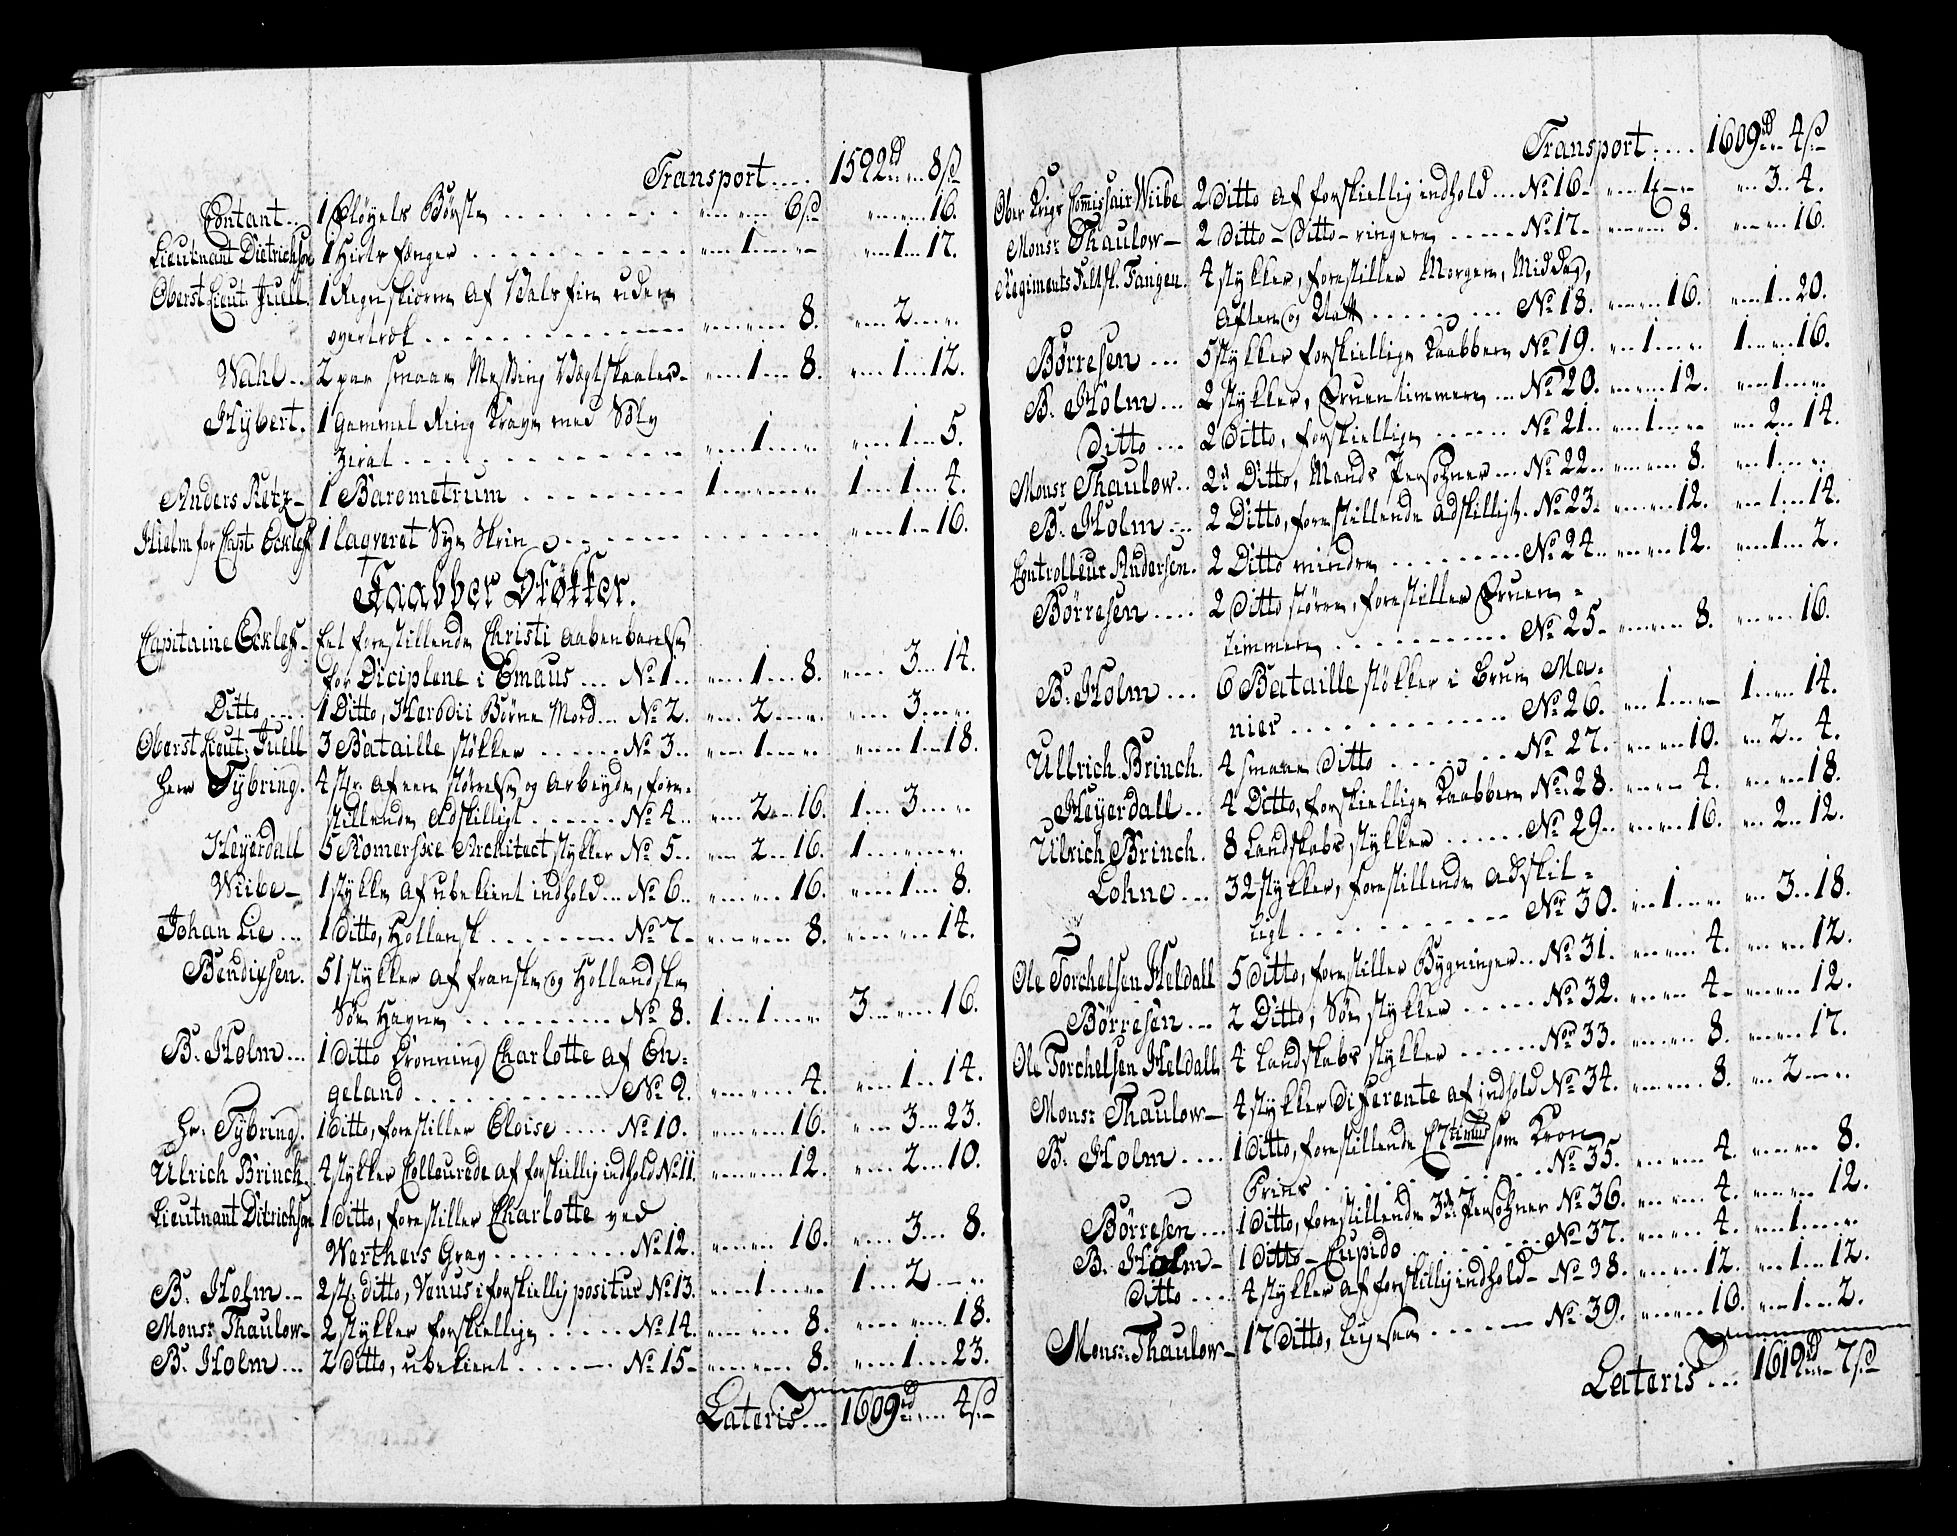 Transport.... 1592rd....8ß
Contant... 1 Fløyels Børste ......... 6ß ....16.
Lieutnant Dietrichson 1 Hirts fænger ......... 1.... ....1...17.
Oberst Lieut: Juell. 1 Regnskiorm af Valsfin uden
overtræk ......... 8. ....2....
Wahl... 2 par smaae Messing Vægtskaaler ....1....8. ....1...12.
Hybert. 1 gammel Ring Krave med Sølv
Zirat ......... 1.... ....1...5.
Anders Retz 1 Barometrum ......... 1....... 1....1...4.
Hielm for Capt: Eckleff 1 laqveret Sye Skrin ......... ....1...16.
Kaabber Støkker.
Capitaine Eckleff Eet forestillende Christi aabenbarelse
for Diciplene i Emaus... No 1... ....1....8. ....3...14.
Ditto.... 1 Ditto, Herodii Børne Mord... No 2. ....2.... ....3....
Oberst Lieut: Juell 3 Bataille støkker ...... No 3... ....1.... ....1...18.
Herr Tybring. 4 st. af een størrelse og arbeyde, fore-
stillende adskilligt ...... No 4... ....2...16. 1....3....
Heyerdall 5 Romerske Architect stykker No 5... ....2...16. 1.......
Wiibe 1 stykke af ubekient indhold... No 6... ....16. ....1...8.
Johan Lie... 1 Ditto, Hollansk ........ No 7 ....8. ....14.
Bendixsen. 51 stykker af franske og Hollandske
Søe Havne ........ No 8. 1...1.... 3.....16.
B. Holm... 1 Ditto Dronning Charlotte af En-
geland ........ No 9. ....4. ....1...14.
Hr. Tybring. 1 Ditto, forestiller Eloise .... No 10. ....16. ....3...23.
Ulrich Brinch. 4 stykker Colleurede af forskiellig indhold No 11. ....12. ....2...10.
Lieutnant Ditrichson 1 Ditto, forestiller Charlotte ved
Werthers Grav ........ No 12. ....16. ....3...8.
B. Holm... 2 st: ditto, Venus i forskiellig positur No 13. ....1.... 1....2....
Monsr Thaulow 2 stykker forskiellige ..... No 14. ....8. ....18.
B. Holm... 2 Ditto, ubekient ..... No 15 ....8. ....1...23.
Lateris... 1609rd....4ß
Transport.... 1609rd....4ß
Ober Krigs Comissair Wiibe 2 Ditto af forskiellig indhold... No 16 ....1.... ....3...4.
Monsr Thaulow 2 Ditto - Ditto - ringere ..... No 17 ....8. ....16.
Regiments Feltsk. Tangen. 4 stykker, forestiller Morgen, Middag,
Aften og Natt ........ No 18. ....16. ....1...20.
Børresen ... 5 stykker forskiellige Kaabbere No 19. ....1.... 1.....16.
B. Holm... 2 stykker, Fruentimmere ... No 20. ....12. ....1....
Ditto ... 2 Ditto, forskiellige ...... No 21... ....1.... ....2...14.
Monsr Thaulow. 2 Ditto, Mands Persohner... No 22... ....8. ....1....
B. Holm... 2 Ditto, forestillende adskilligt. No 23. ....12. ....1...14.
Controlleur Andersen. 2 Ditto mindre ........ No 24... ....12. ....1...2.
Børresen .... 2 Ditto større, forestiller Fruen-
timmere ........ No 25 ....8. ....16.
B. Holm ... 6 Bataille støkker i brun Ma-
nier ........ No 26. ....1.... 1.....14.
Ullrich Brinch. 4 smaae Ditto ........ No 27. ....10. ....2...4.
Heyerdall... 4 Ditto, forskiellige Kaabbere No 28. ....4. ....18.
Ulrich Brinch. 8 Landskabs stykker ...... No 29... ....16. ....2...12.
Lohne ... 32 stykker, forestillende adskil-
ligt ........ No 30. ....1.... ....3...18.
Ole Torchelsen Heldall 5 Ditto, forestiller Bygninger... No 31. ....4. ....12.
Børresen ... 2 Ditto, Søe stykker ..... No 32. ....4 ....12.
Ole Torchelsen Heldall 4 Landskabs stykker ...... No 33. ....8. ....17.
Monsr Thaulow 4 stykker diferente af indhold No 34. ....8. ....2....
B. Holm .... 1 Ditto, forestillende som Kron
Prins ........ No 35. ....4. ....8.
Børresen ... 1 Ditto, forestillende 3de Persohner No 36. ....4. ....12.
B. Holm 1 Ditto - Cupido ........ No 37. ....4. ....1....
Ditto .... 4 stykker af forskiellig indhold No 38. ....12. ....1...12.
Monsr: Thaulow 17 Ditto, ligesaa ...... No 39. ....10. ....1...2.
Lateris ... 1619rd....7ß